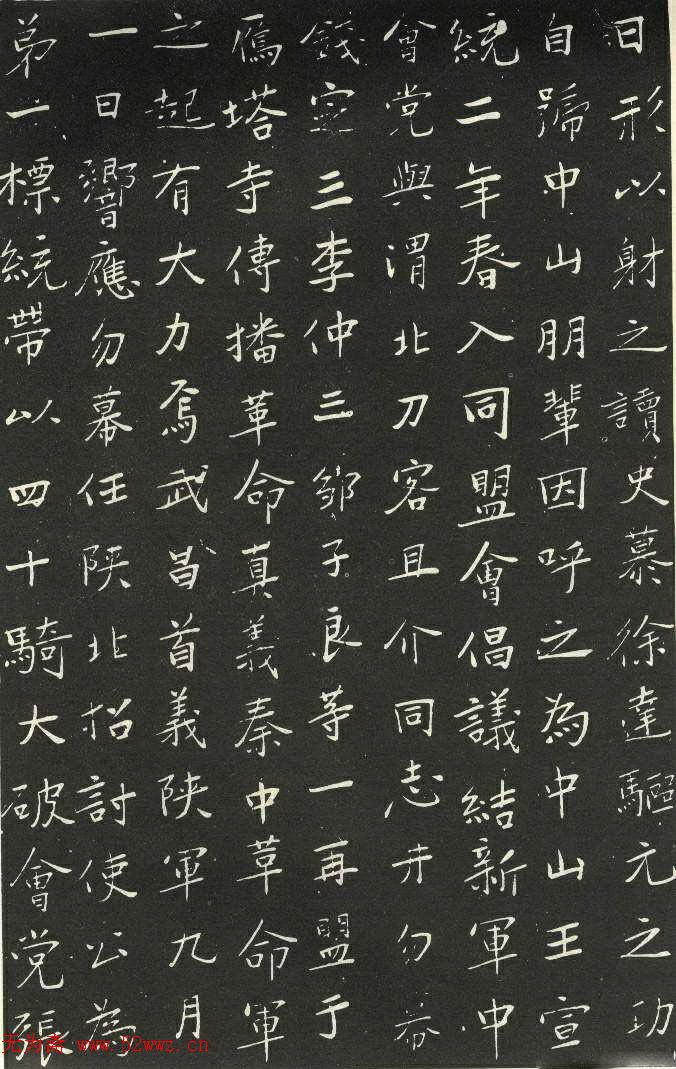 日形以射之讀史慕徐達驅元之功
自號中山朋輩因呼之為中山王宣
統二年春入同盟會倡議結新軍中
會党與渭北刀客且介同志井勿幕
錢定三李仲三鄒子良等一再盟于
鴈塔寺傳播革命真義秦中革命軍
之起有大力焉武昌首義陝軍九月
一日響應勿幕任陝北招討使公為
弟一標統帶以四十騎大破會党張
无为斋 www.52wwz.cn